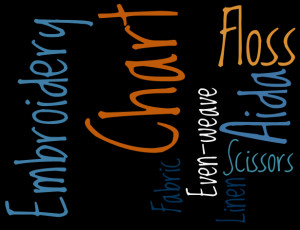 Embroidery
Chart
Fabric
Even-weave
Floss
Aida
Scissors
Linen